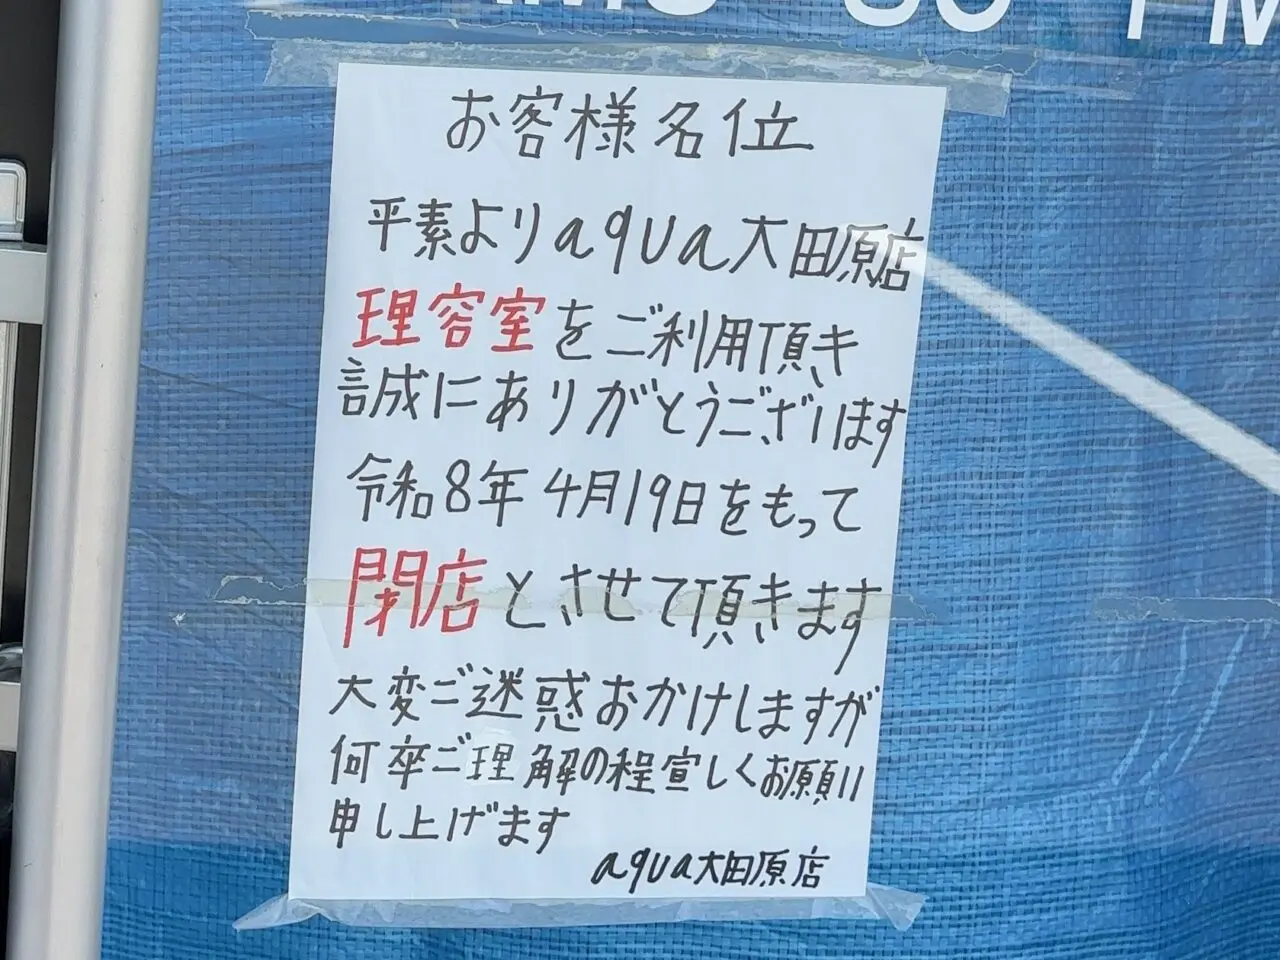 お客様名位
平素よりaqua大田原店
理容室をご利用頂き
誠にありがとうございます
令和8年4月19日をもって
閉店とさせて頂きます
大変ご迷惑おかけしますが
何卒ご理解の程宜しくお願い
申し上げます
aqua大田原店